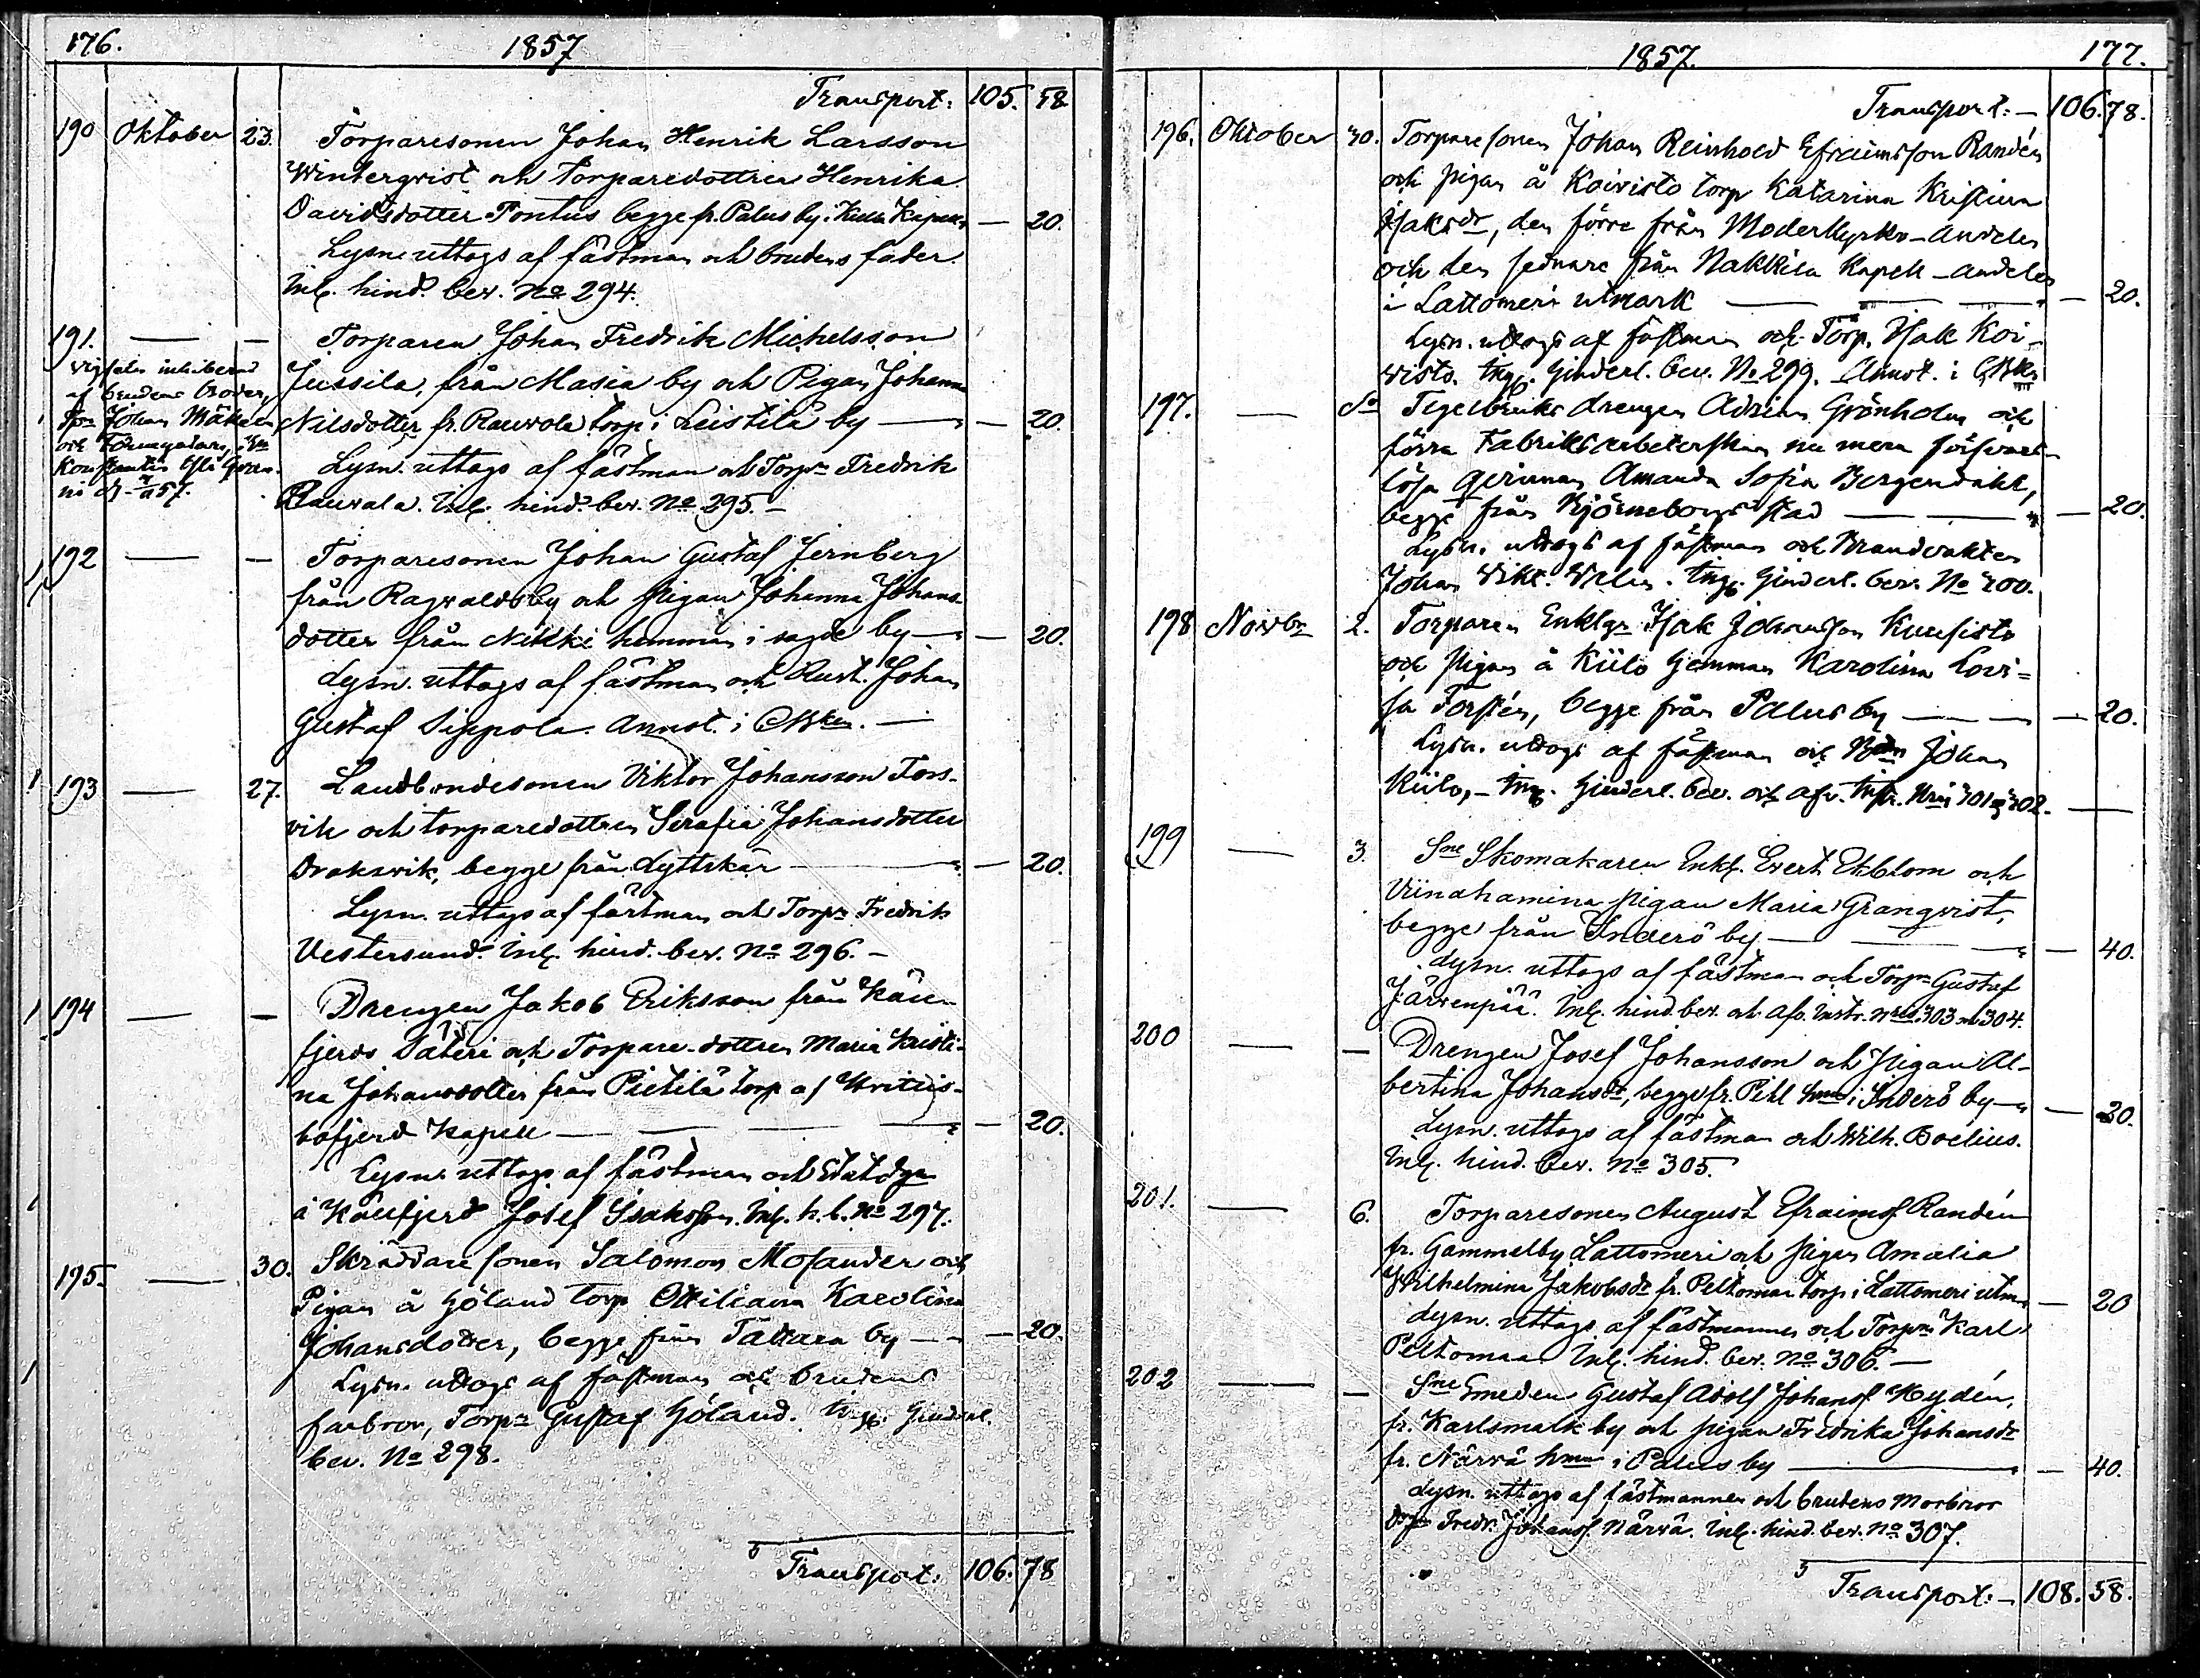 176.
1857
Transport: 105. 58
190 Oktober 23. Torparesonen Johan Henrik Larsson
Wintergvist och torparedottren Henrika
Davidsdotter Pontus begge fr. Palus by. Kulla Kapell — 20.
Lysn. uttogs af fästman och brudens fader.
Inl. hind. bev. No 294.
191. — — Torparen Johan Fredrik Michelsson
Jussila, från Masia by och Pigan Johanna
Nilsdotter fr. Rauvola torp i Leistilä by — — 20.
Lysn. uttogs af fästman och Torpn Fredrik
Rauvala. Inl. hind. bev. No 295. —
Vigseln inhiberad
af brudens broder,
Tpn Johan Mäki
och
Konstantin
57.
192 — — Torparesonen Johan Gustaf Jernberg
från Ragvaldsby och pigan Johanna Johans-
dotter från Nikki hemman i sagde by — — 20.
Lysn. uttogs af fästman och Rust. Johan
Gustaf Sippola. Annot. i CBken. —
1 193 — 27. Landbondesonen Viktor Johansson Tors-
vik och torparedottren Serafia Johansdotter
Draksvik, begge från Lyttskär — — 20.
Lysn. uttogs af fästman och Torpn Fredrik
Vestersund. Inl. hind. bev. No 296. —
1 194 — — Drengen Jakob Eriksson från Käu-
fjerds Säteri och Torpare-dottren Maria Kristi-
na Johansdotter från Pietilä torp af Hvittis-
bofjerd Kapell — — — 20.
Lysn. uttogs af fästman och Statdgn
å Käufjerd Josef Isaksson. Inl. h. b. No 297.
195. — 30. Skräddare sonen Salomon Mosander och
Pigan å Höland torp Ottiliana Karolina
Johansdotter, begge från Tattara by — — 20.
Lysn. uttogs af fästman och brudens
farbror, Torpn Gustaf Höland. Ing. hinderl.
bev. No 298.
Transport: 106. 78
1857.
177.
Transport: — 106. 78.
196. Oktober 30. Torpare sonen Johan Reinhold Efraimsson Randén
och pigan å Koivisto torp Katarina Kristina
Isaksdr, den förre från Moderkyrko-andelen
och den sednare från Nakkila Kapell-andelen
i Lattomeri utmark — — — 20.
Lysn. uttogs af fästman och Torp. Isak Koi-
visto. Ing. hinderl. bev. No 299. Annot. i CBken
197. — do Tegelbruks drengen Adrian Grönholm och
förra Fabriksarbeterskan nu mera försvars-
lösa qvinnan Amanda Sofia Bergendahl,
begge från Björneborgs stad — — — 20.
Lysn. uttogs af fästman och Brandvakten
Johan Vikt. Ing. hinderl. bev. No 300.
198 Novbr 2. Torparen Enklgn Isak Johansson Kuusisto
och pigan å Kiilo hemman Karolina Lovi-
sa Torstén, begge från Palus by — — — 20.
Lysn. uttogs af fästman och Bdn Johan
Kiilo, — Ing. hinderl. bev. och afv. instr. Nris 301 och 302. —
199 — 3. Sne Skomakaren Enkl. Evert Ekblom och
Viinahamina pigan Maria Granqvist,
begge från Inderö by — — — 40.
Lysn. uttogs af fästman och Torpn Gustaf
Järvenpää. Inl. hind. bev. och afv. instr. Nris 303 och 304.
200 — — Drengen Josef Johansson och pigan Al-
bertina Johansdr, begge fr. Pihl hmn i Inderö by — — 20.
Lysn. uttogs af fästman och Wilh. Boelius.
Inl. hind. bev. No 305.
201. — 6. Torparesonen August Efraimsson Randén
fr. Gammelby Lattomeri och pigan Amalia
Wilhelmina Jakobsdr fr. Peltomaa torp i Lattomeri utm. — 20
Lysn. uttogs af fästmannen och Torpn Karl
Peltomaa. Inl. hind. bev. No 306. —
202 — — Sne Smeden Gustaf Adolf Johanss. Hydén,
fr. Karlsmalk by och pigan Fredrika Johansdr
fr. Närvä hmn i Palus by — — 40.
Lysn. uttogs af fästmannen och brudens morbror
Fredr. Johanss. Närvä. Inl. hind. bev. No 307.
Transport: — 108. 58.